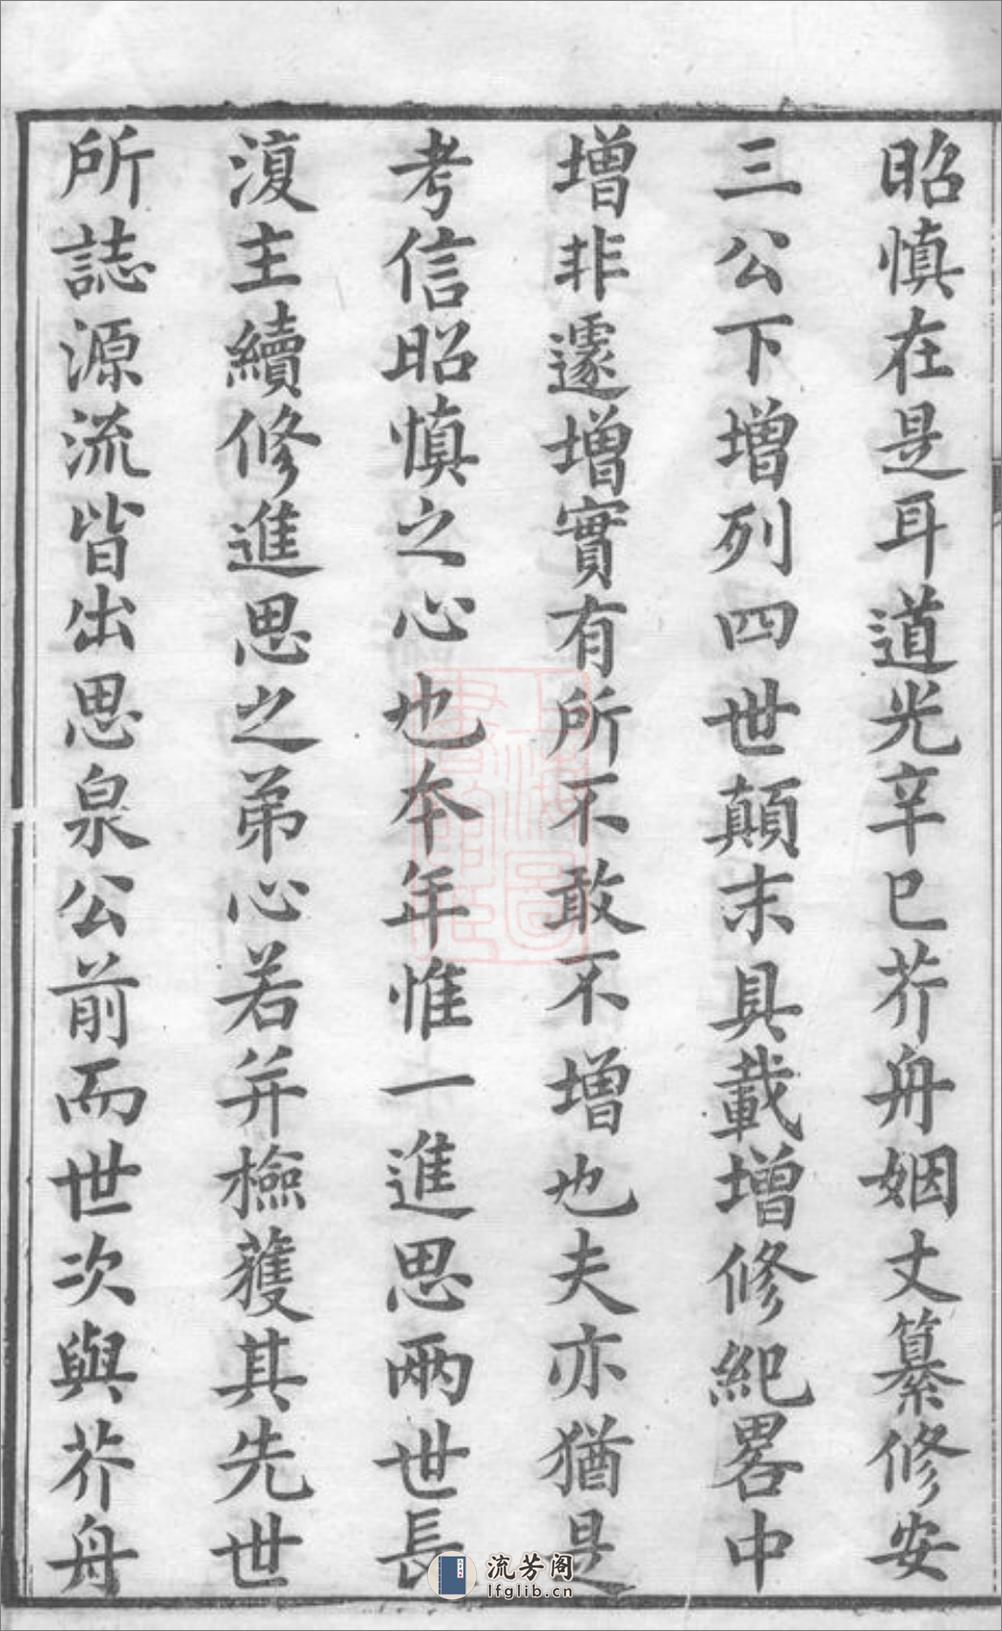 昭慎在是耳道光辛巳芥舟姻丈纂修安
三公下增列四世顛末具載增修紀畧中
增非遽增實有所不敢不增也夫亦猶是
考信昭慎之心也本年惟一進思兩世長
復主續修進思之弟心若并檢獲其先世
所誌源流皆出思泉公前而世次與芥舟
上海圖書館藏
流芳阁
lfglib.cn